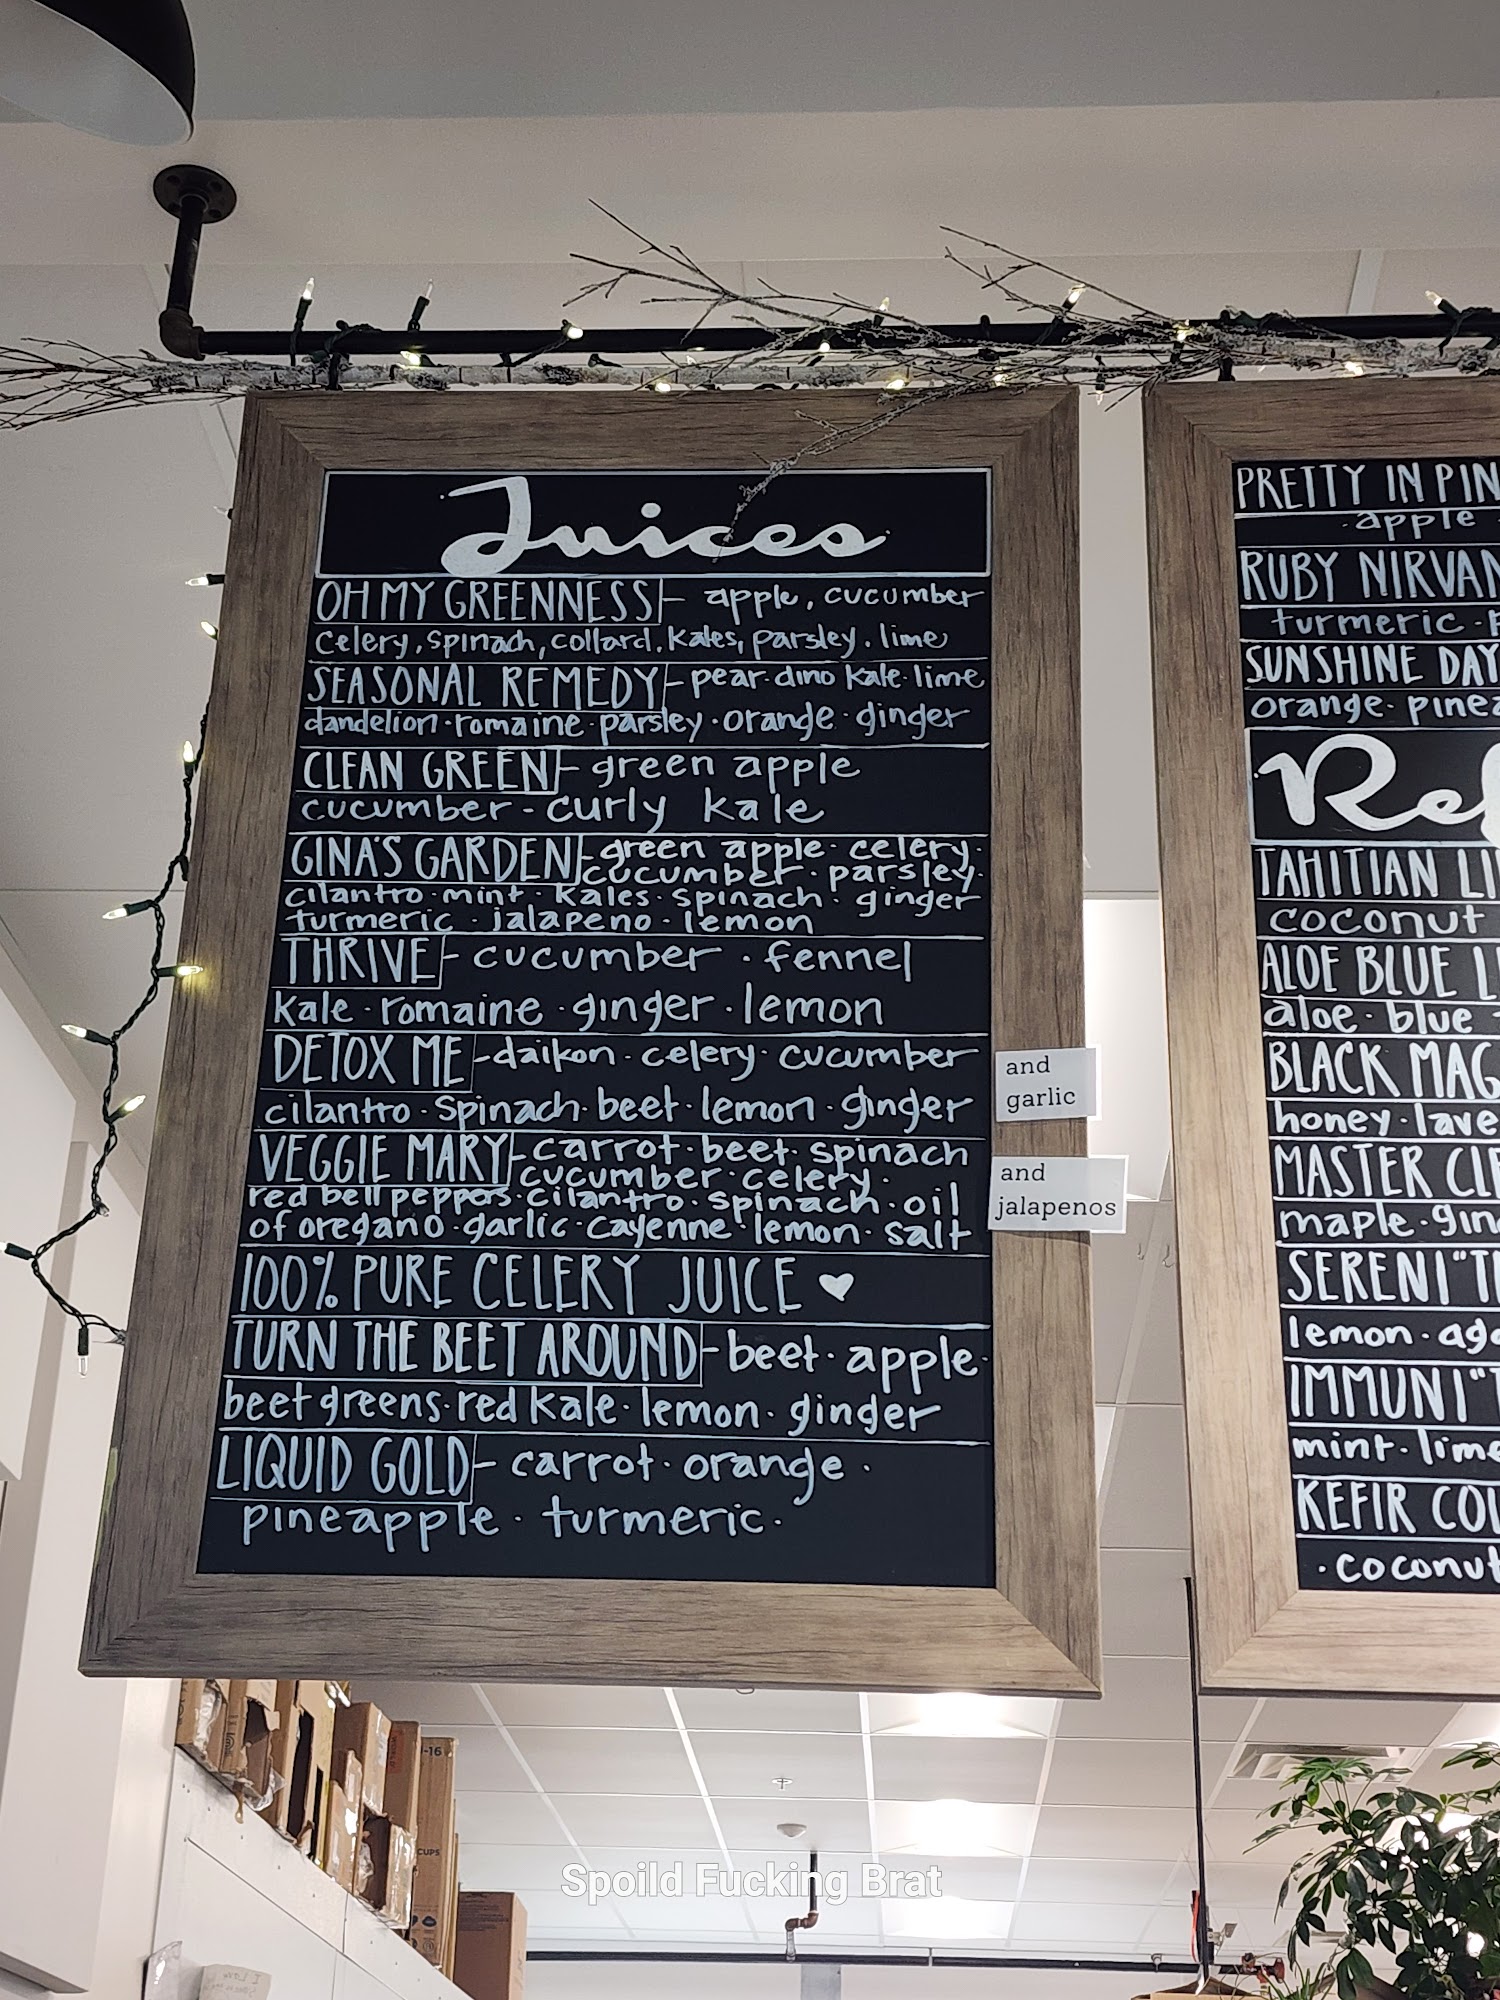 Juices
OH MY GREENNESS - apple, cucumber
celery, spinach, collard, kales, parsley, lime
SEASONAL REMEDY - pear · dino kale · lime
dandelion · romaine · parsley · orange · ginger
CLEAN GREEN - green apple
cucumber - curly kale
GINA'S GARDEN - green apple · celery ·
cucumber · parsley ·
cilantro · mint · kales · spinach · ginger
turmeric · jalapeno · lemon
THRIVE - cucumber · fennel
kale · romaine · ginger · lemon
DETOX ME - daikon · celery · cucumber
cilantro · spinach · beet · lemon · ginger
and
garlic
VEGGIE MARY - carrot · beet · spinach
cucumber · celery ·
red bell peppers · cilantro · spinach · oil
of oregano · garlic · cayenne · lemon · salt
and
jalapenos
100% PURE CELERY JUICE ♥
TURN THE BEET AROUND - beet · apple ·
beet greens · red kale · lemon · ginger
LIQUID GOLD - carrot · orange ·
pineapple · turmeric ·
PRETTY IN PIN
· apple
RUBY NIRVAN
turmeric ·
SUNSHINE DAY
orange · pinea
Ref
TAHITIAN LI
coconut
ALOE BLUE L
aloe · blue
BLACK MAG
honey · lave
MASTER CL
maple · gin
SERENI"T
lemon · aga
IMMUNI"T
mint · lime
KEFIR CO
· coconut
-16
CUPS
Spoild Fucking Brat